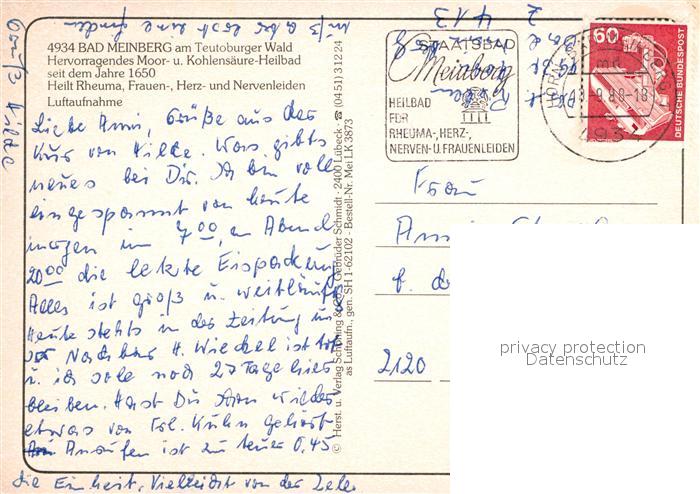 4934 BAD MEINBERG am Teutoburger Wald
Hervorragendes Moor- u. Kohlensäure-Heilbad
seit dem Jahre 1650
Heilt Rheuma, Frauen-, Herz- und Nervenleiden
Luftaufnahme
Liebe Anni, Grüße aus der
Kur von Hilke. Was gibts
neues bei Dir. Ich bin voll
eingespannt von heute
morgen um 7⁰⁰, am Abend
20⁰⁰ die letzte Eispackung
Alles ist groß u. weitläufig
Heute stehts in der Zeitung uns
Nachbar H. Wieckel ist tot
u. ich solle noch 27 Tage hier
bleiben. Hast Du schon wieder
etwas von Frl. Kuhn gehört
Anrufen ist zu teuer 0,45
die Einheit. Vielleicht von der Zelle
Gruß Hilke
© Herst. u. Verlag Schöning & Gebrüder Schmidt · 2400 Lübeck · ☎ (04 51) 3 12 24
as Luftaufn., gen. SH 1-62102 · Bestell-Nr. Mei LK 3873
STAATSBAD
Meinberg
HEILBAD
FÜR
RHEUMA-, HERZ-,
NERVEN- U. FRAUENLEIDEN
413
60
DEUTSCHE BUNDESPOST
4934
Frau
2120
privacy protection
Datenschutz